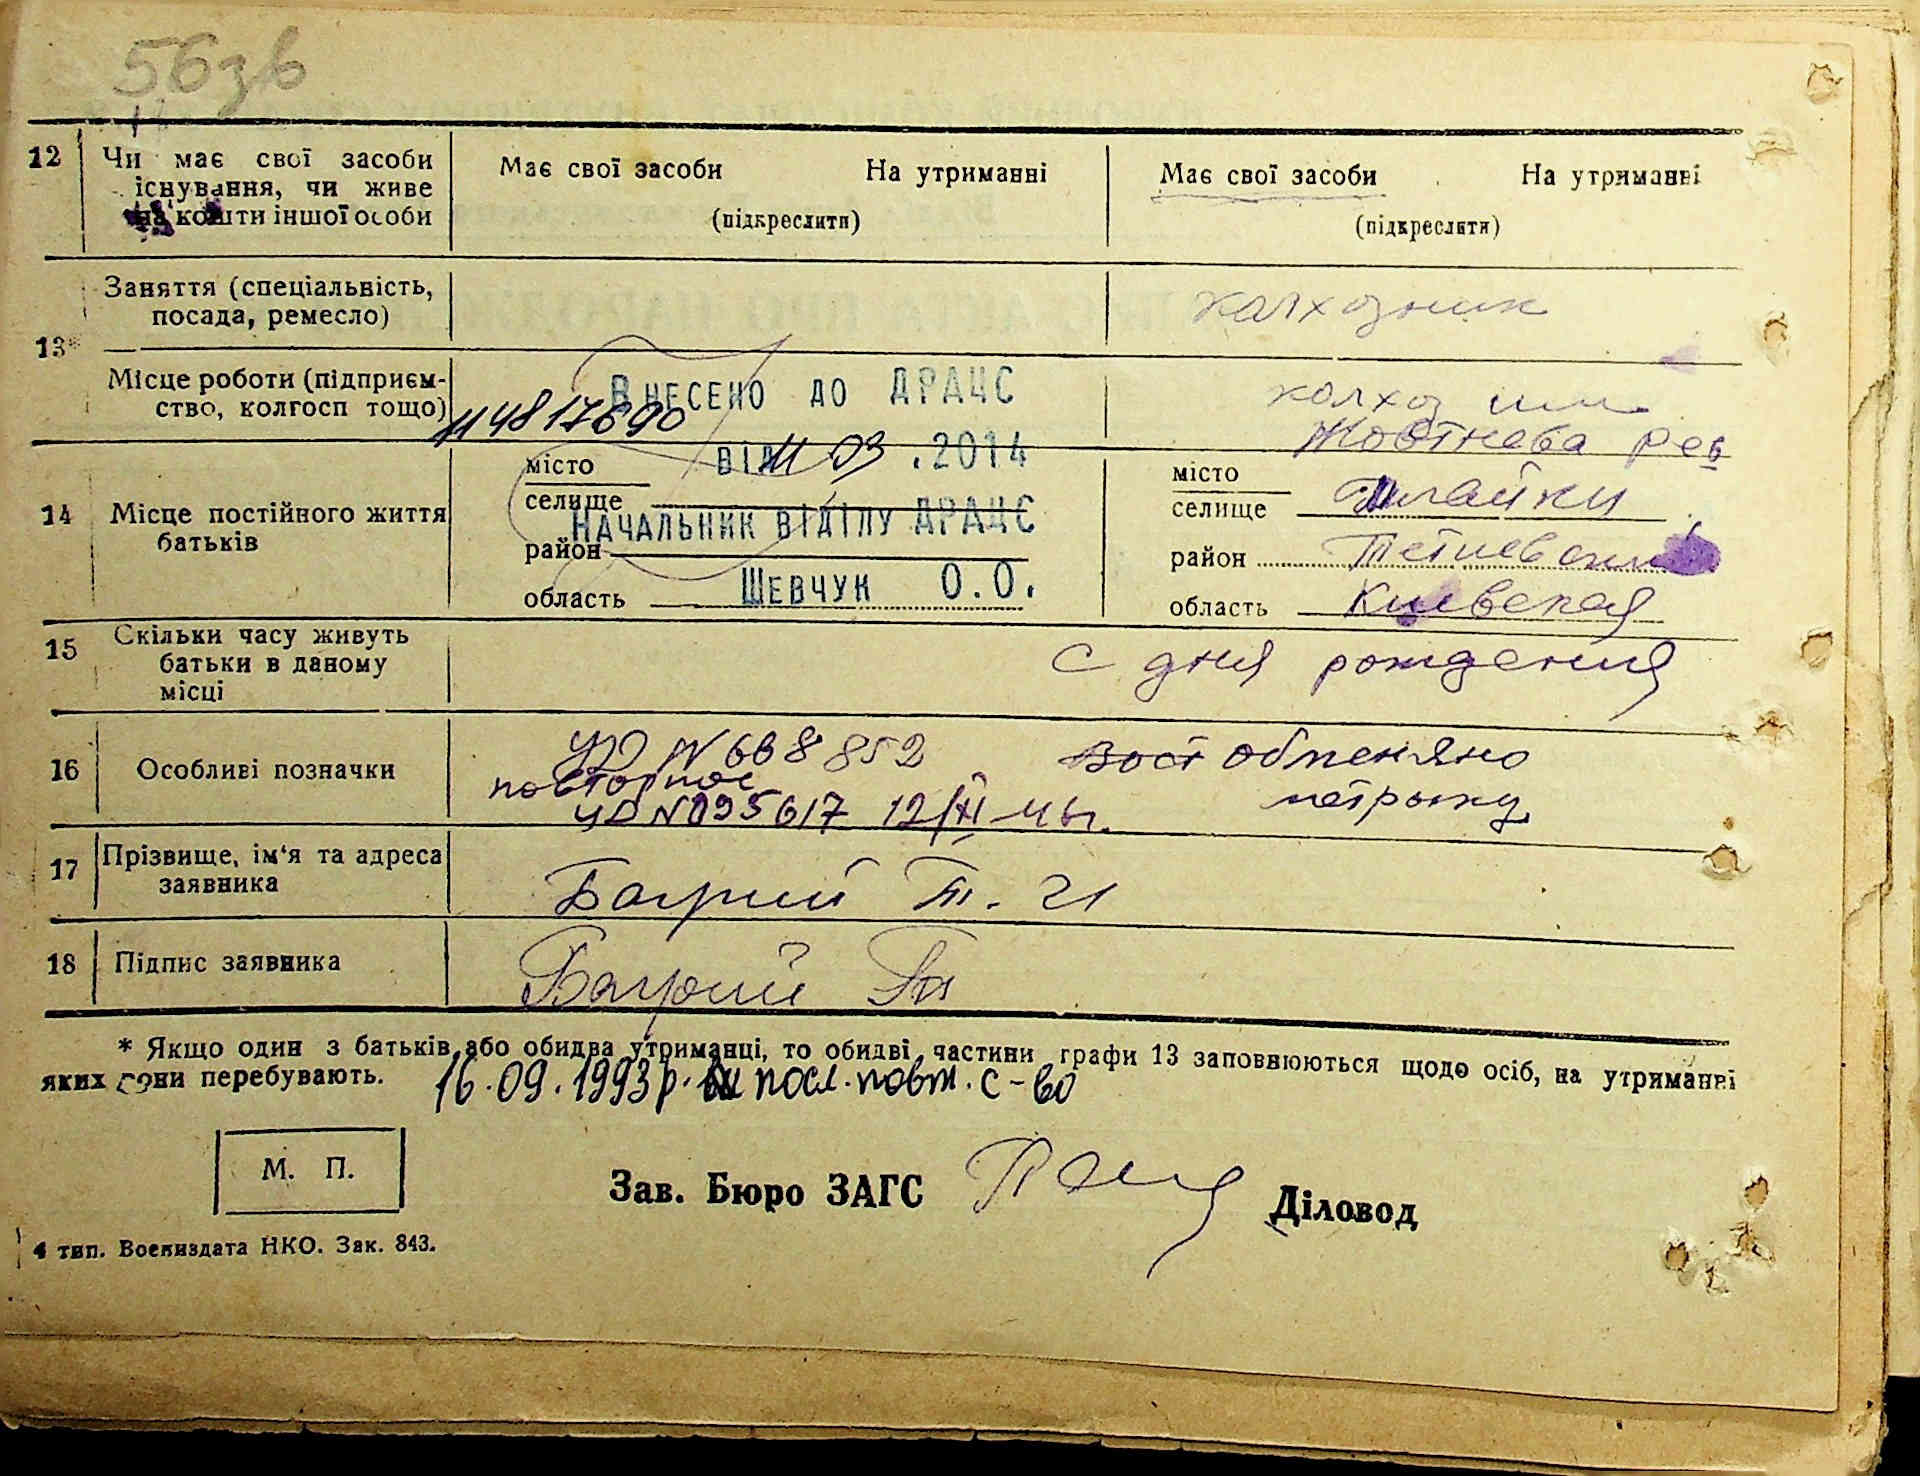 56зв
12 Чи має свої засоби існування, чи живе на кошти іншої особи
Має свої засоби На утриманні
(підкреслити)
Має свої засоби На утриманні
(підкреслити)
13*
Заняття (спеціальність, посада, ремесло)
колхозник
Місце роботи (підприємство, колгосп тощо)
колхоз им
Жовтнева рев
114817690
Внесено до ДРАЦС
від 11 03 .2014
Начальник відділу ДРАЦС
Шевчук О.О.
14 Місце постійного життя батьків
місто
селище
район
область
місто
селище
район Тетиевский
область Киевская
15 Скільки часу живуть батьки в даному місці
с дня рождения
16 Особливі позначки
УО N 668852
повторное
УО N 095617 12/XI
Вост обменяно
метрыку
17 Прізвище, ім'я та адреса заявника
Багрий Т. И
18 Підпис заявника
Багрий
* Якщо один з батьків або обидва утриманці, то обидві частини графи 13 заповнюються щодо осіб, на утриманні
яких вони перебувають.
16.09.1993р. посл. повт. с-во
М. П.
Зав. Бюро ЗАГС
Діловод
4 тип. Воениздата НКО. Зак. 843.